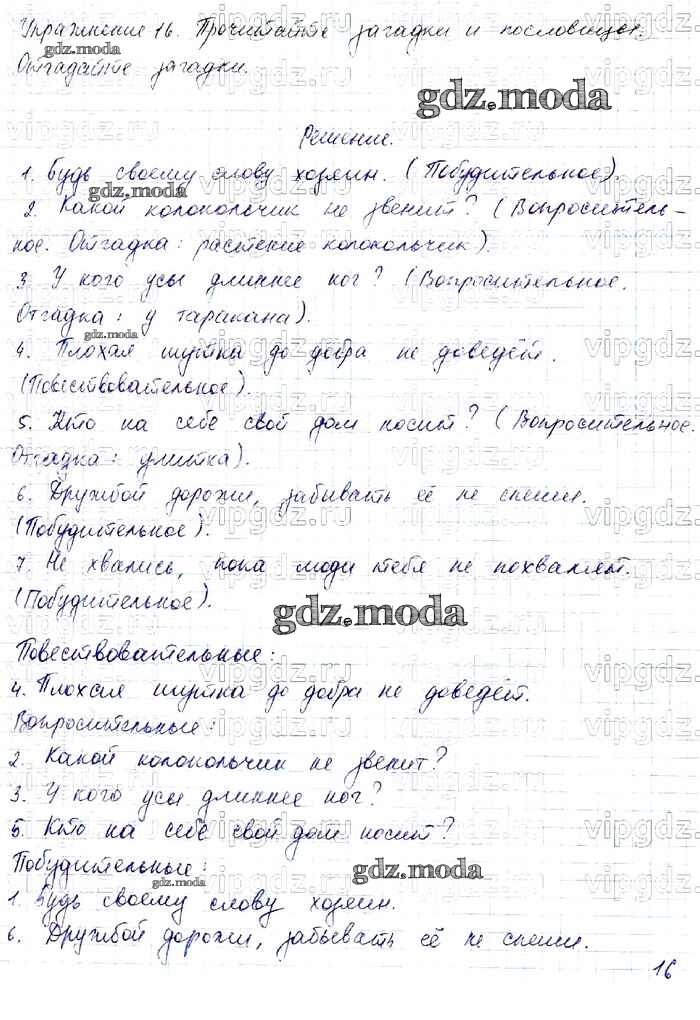 Упражнение 16. Прочитайте загадки и пословицы.
Отгадайте загадки.
gdz.moda
Решение.
1. Будь своему слову хозяин. (Побудительное).
gdz.moda
2. Какой колокольчик не звенит? (Вопроситель-
ное. Отгадка: растение колокольчик).
3. У кого усы длиннее ног? (Вопросительное.
Отгадка: у таракана).
gdz.moda
4. Плохая шутка до добра не доведёт.
(Повествовательное).
5. Кто на себе свой дом носит? (Вопросительное.
Отгадка: улитка).
6. Дружбой дорожи, забывать её не спеши.
(Побудительное).
7. Не хвались, пока люди тебя не похвалят.
(Побудительное).
gdz.moda
Повествовательные:
4. Плохая шутка до добра не доведёт.
Вопросительные:
2. Какой колокольчик не звенит?
3. У кого усы длиннее ног?
5. Кто на себе свой дом носит?
Побудительные:
gdz.moda
gdz.moda
1. Будь своему слову хозяин.
6. Дружбой дорожи, забывать её не спеши.
16